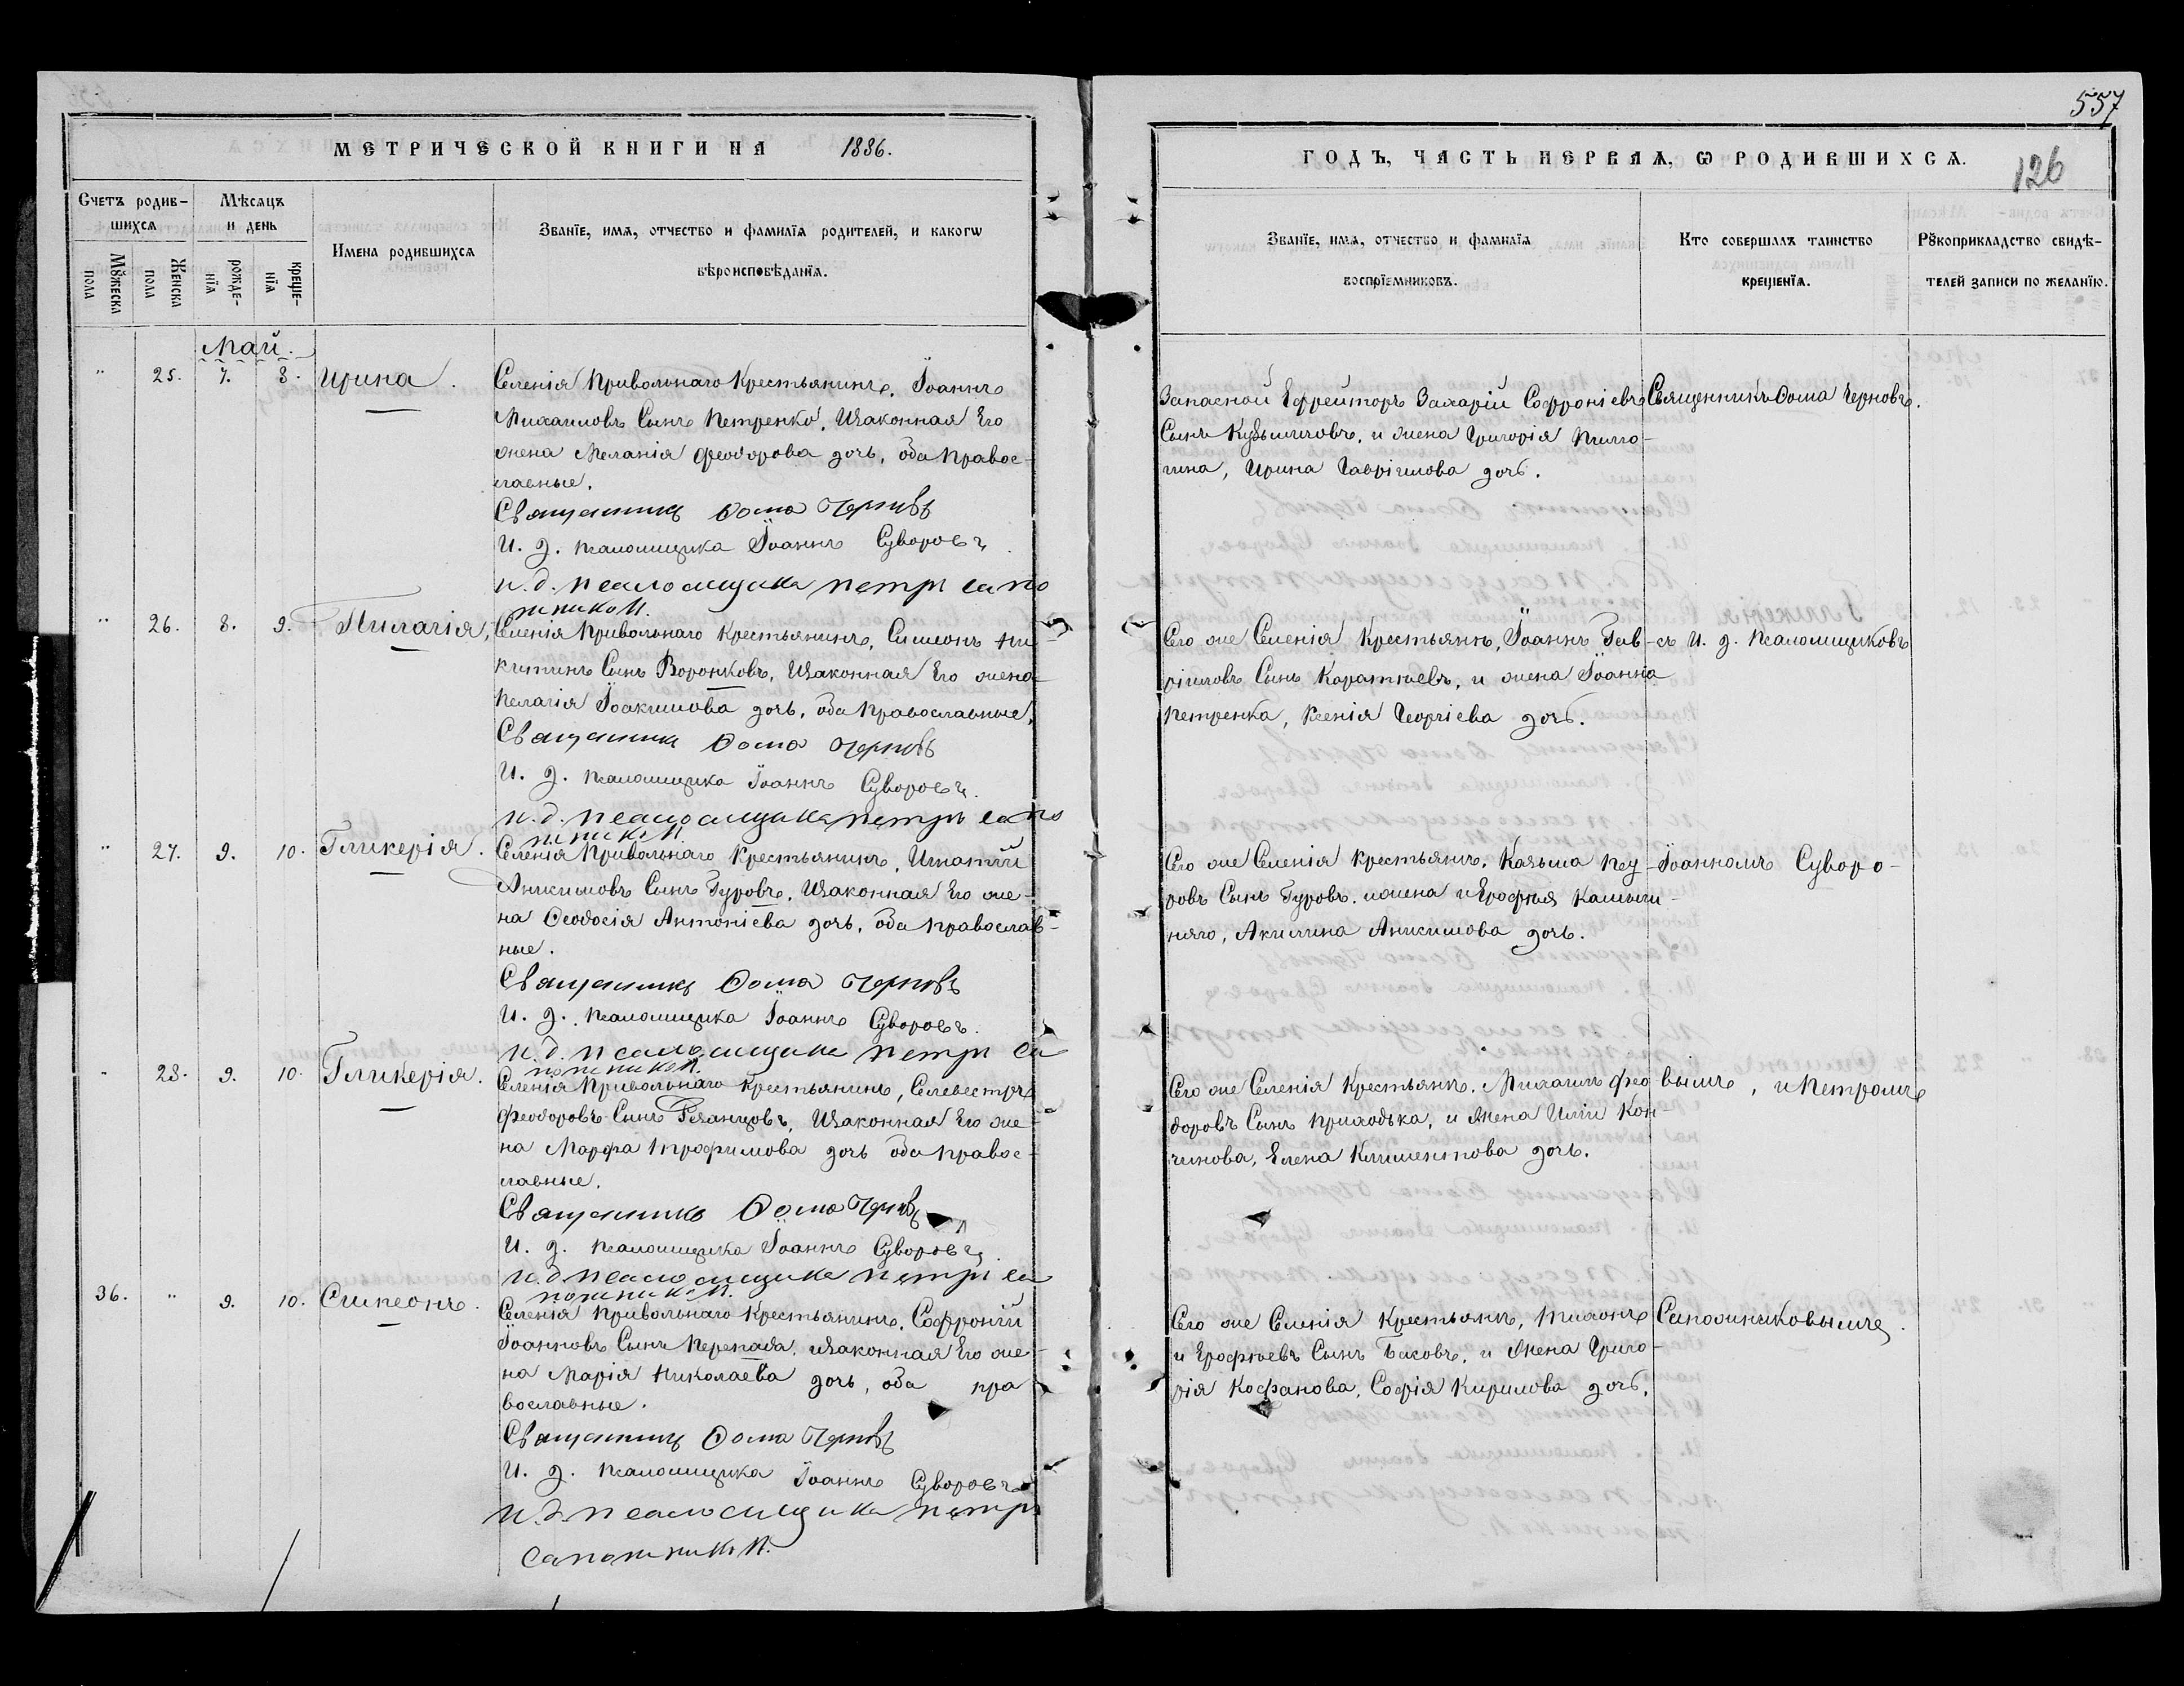 557
МЕТРИЧЕСКОЙ КНИГИ НА 1886.
ГОДЪ, ЧАСТЬ ПЕРВАѦ, Ѡ РОДИВШИХСѦ.
126
Счетъ родив-
шихсѧ
Мѣсѧцъ
и день
Мꙋжеска
пола
Женска
пола
рожде-
нїѧ
креще-
нїѧ
Имена родившихсѧ
Званїе, имѧ, отчество и фамилїѧ родителей, и какогѡ
вѣроисповѣданїѧ.
Званїе, имѧ, отчество и фамилїѧ
воспрїемниковъ.
Кто совершалъ таинство
крещенїѧ.
Рꙋкоприкладство свидѣ-
телей записи по желанїю.
Май.
" 25. 7. 8. Ирина.
Селенія Привольнаго Крестьянинъ, Іоаннъ
Михаиловъ Сынъ Петренко, Изаконная Его
жена Меланія Феодорова дочь, оба правос-
лавные.
Священникъ Ѳома Черновъ
И. д. псаломщика Іоаннъ Суворовъ.
и.д. псаломщика петръ сапо
жникои.
Запасной Ефрейторъ Захарій Софроніевъ
Сынъ Кузьминовъ, и жена Григорія
Ирина Гавріилова дочь.
Священникъ Ѳома Черновъ.
" 26. 8. 9. Пилагія,
Селенія Привольнаго Крестьянинъ, Симеонъ Ни-
китинъ Сынъ Воронковъ, Изаконная Его жена
Пелагія Іоакимова дочь, оба Православные,
Священникъ Ѳома Черновъ
И. д. псаломщика Іоаннъ Суворовъ.
и.д. псаломщика петръ сапо
жникои
Сего же Селенія Крестьянъ, Іоаннъ Гав-
ріиловъ Сынъ Коратѣевъ, и жена Іоанна
Петренка, Ксенія Георгіева дочь.
съ И. д. Псаломщиковъ
" 27. 9. 10. Гликерія.
Селенія Привольнаго Крестьянинъ, Игнатій
Аникимовъ Сынъ Гуровъ, Изаконная Его же-
на Ѳеодосія Антоніева дочь, оба православ-
ные.
Священникъ Ѳома Черновъ
И. д. псаломщика Іоаннъ Суворовъ.
и.д. псаломщика петръ са
пожникои.
Сего же Селенія крестьянъ, Казьма
Сынъ Гуровъ, и жена Иерофея
Акилина Аникимова дочь.
Іоанномъ Суворо-
" 28. 9. 10. Гликерія.
Селенія Привольнаго Крестьянинъ, Селевестръ
Феодоровъ Сынъ Рязанцовъ, Изаконная Его же-
на Марфа Трофимова дочь оба правос-
лавные.
Священникъ Ѳома Черновъ
И. д. псаломщика Іоаннъ Суворовъ.
и.д. псаломщика петръ са
пожникои.
Сего же Селенія Крестьянъ, Михаилъ Фео
доровъ Сынъ Приходька, и Жена Иліи Кон-
чинова, Елена Климентова дочь.
вымъ, и Петромъ
36. " 9. 10. Симеонъ.
Селенія Привольнаго Крестьянинъ, Софроній
Іоанновъ Сынъ Перепада, изаконная Его же-
на Марія Николаева дочь, оба пра
вославные.
Священникъ Ѳома Черновъ
И. д. псаломщика Іоаннъ Суворовъ
и.д. псаломщика петръ
сапожникои.
Сего же Селенія Крестьянъ, Тихонъ
и Ерофѣевъ Сынъ Баковъ, и Жена Григо-
рія Кофанова, Софія Кирилова дочь.
Сапожниковымъ.